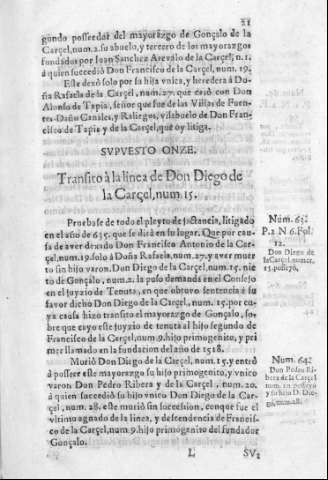 21
gundo posseedor del mayorazgo de Gonçalo de la
Carçel, num.2. su abuelo, y tercero de los mayorazgos
fundados por Ioan Sanchez Arevalo de la Carçel, n. 1.
á quien succedió Don Francisco de la Carçel, num. 19.
Este dexó solo por su hija vnica, y heredera á Do-
ña Rafaela de la Carçel, num. 27. que casó con Don
Alonso de Tapia, señor que fue de las Villas de Fuen-
tes-Daño Canales, y Raliegos, visabuelo de Don Fran-
cisco de Tapia y de la Carçel, que oy litiga.
SVPVESTO ONZE.
Transito à la linea de Don Diego de
la Carçel, num. 15.
Pruebase de todo el pleyto de jactancia, litigado
en el año de 635. que se dirá en su lugar. Que por cau-
sa de aver dexado Don Francisco Antonio de la Car-
çel, num. 19. solo á Doña Rafaela, num. 27. y aver muer-
to sin hijo varon. Don Diego de la Carçel, num. 15. nie-
to de Gonçalo, num. 2. la puso demanda en el Consejo
en el juyzio de Tenuta, en que obtuvo sentencia á su
favor dicho Don Diego de la Carçel, num. 15. por cu-
ya causa hizo transito el mayorazgo de Gonçalo, so-
bre que cayo este juyzio de tenuta al hijo segundo de
Francisco de la Carçel, num. 9. hijo primogenito, y pri
mer llamado en la fundacion del año de 1518.
Murió Don Diego de la Carçel, num. 15. y entró
á posseer este mayorazgo su hijo primogenito, y vnico
varon Don Pedro Ribera y de la Carçel, num. 20.
á quien succedió su hijo vnico Don Diego de la Car-
çel, num. 28. este murió sin succession, conque fue el
vltimo agnado de la linea, y descendencia de Francis-
co de la Carçel, num. 9. hijo primogenito del fundador
Gonçalo.
L
Num. 63.
P. 2 N 6. Fol.
12.
Don Diego de
la Carçel, numer.
15. posseyó,
Num. 64
Don Pedro Ri-
bera de la Carçel
num. 20. posseyó
y su hijo D. Die-
go, num. 28.